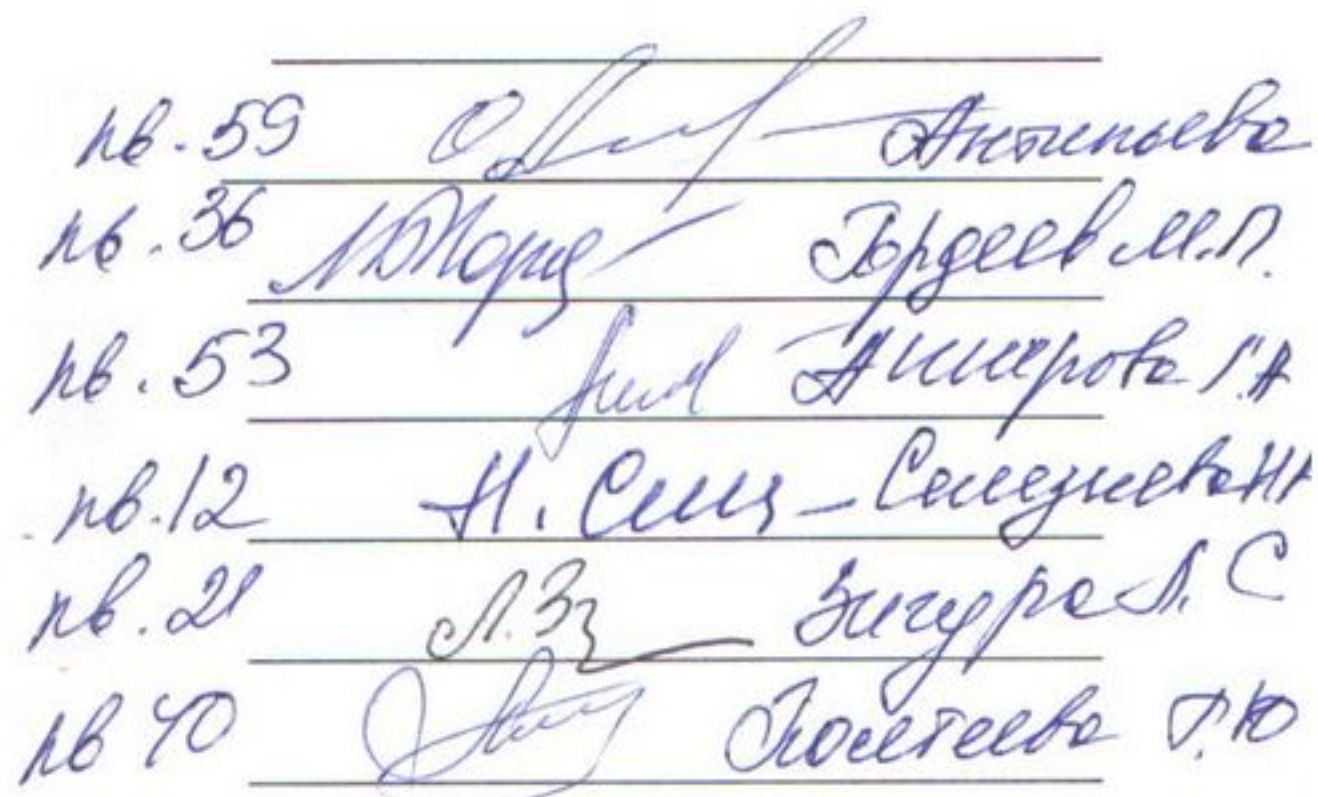 кв. 59 Антипьева
кв. 36 Гордеев М.П.
кв. 53 Аширова Г.А
кв. 12 Н. Селезнева Н
кв. 21 Л.З Зигура Л. С
кв 40 Г.Ю